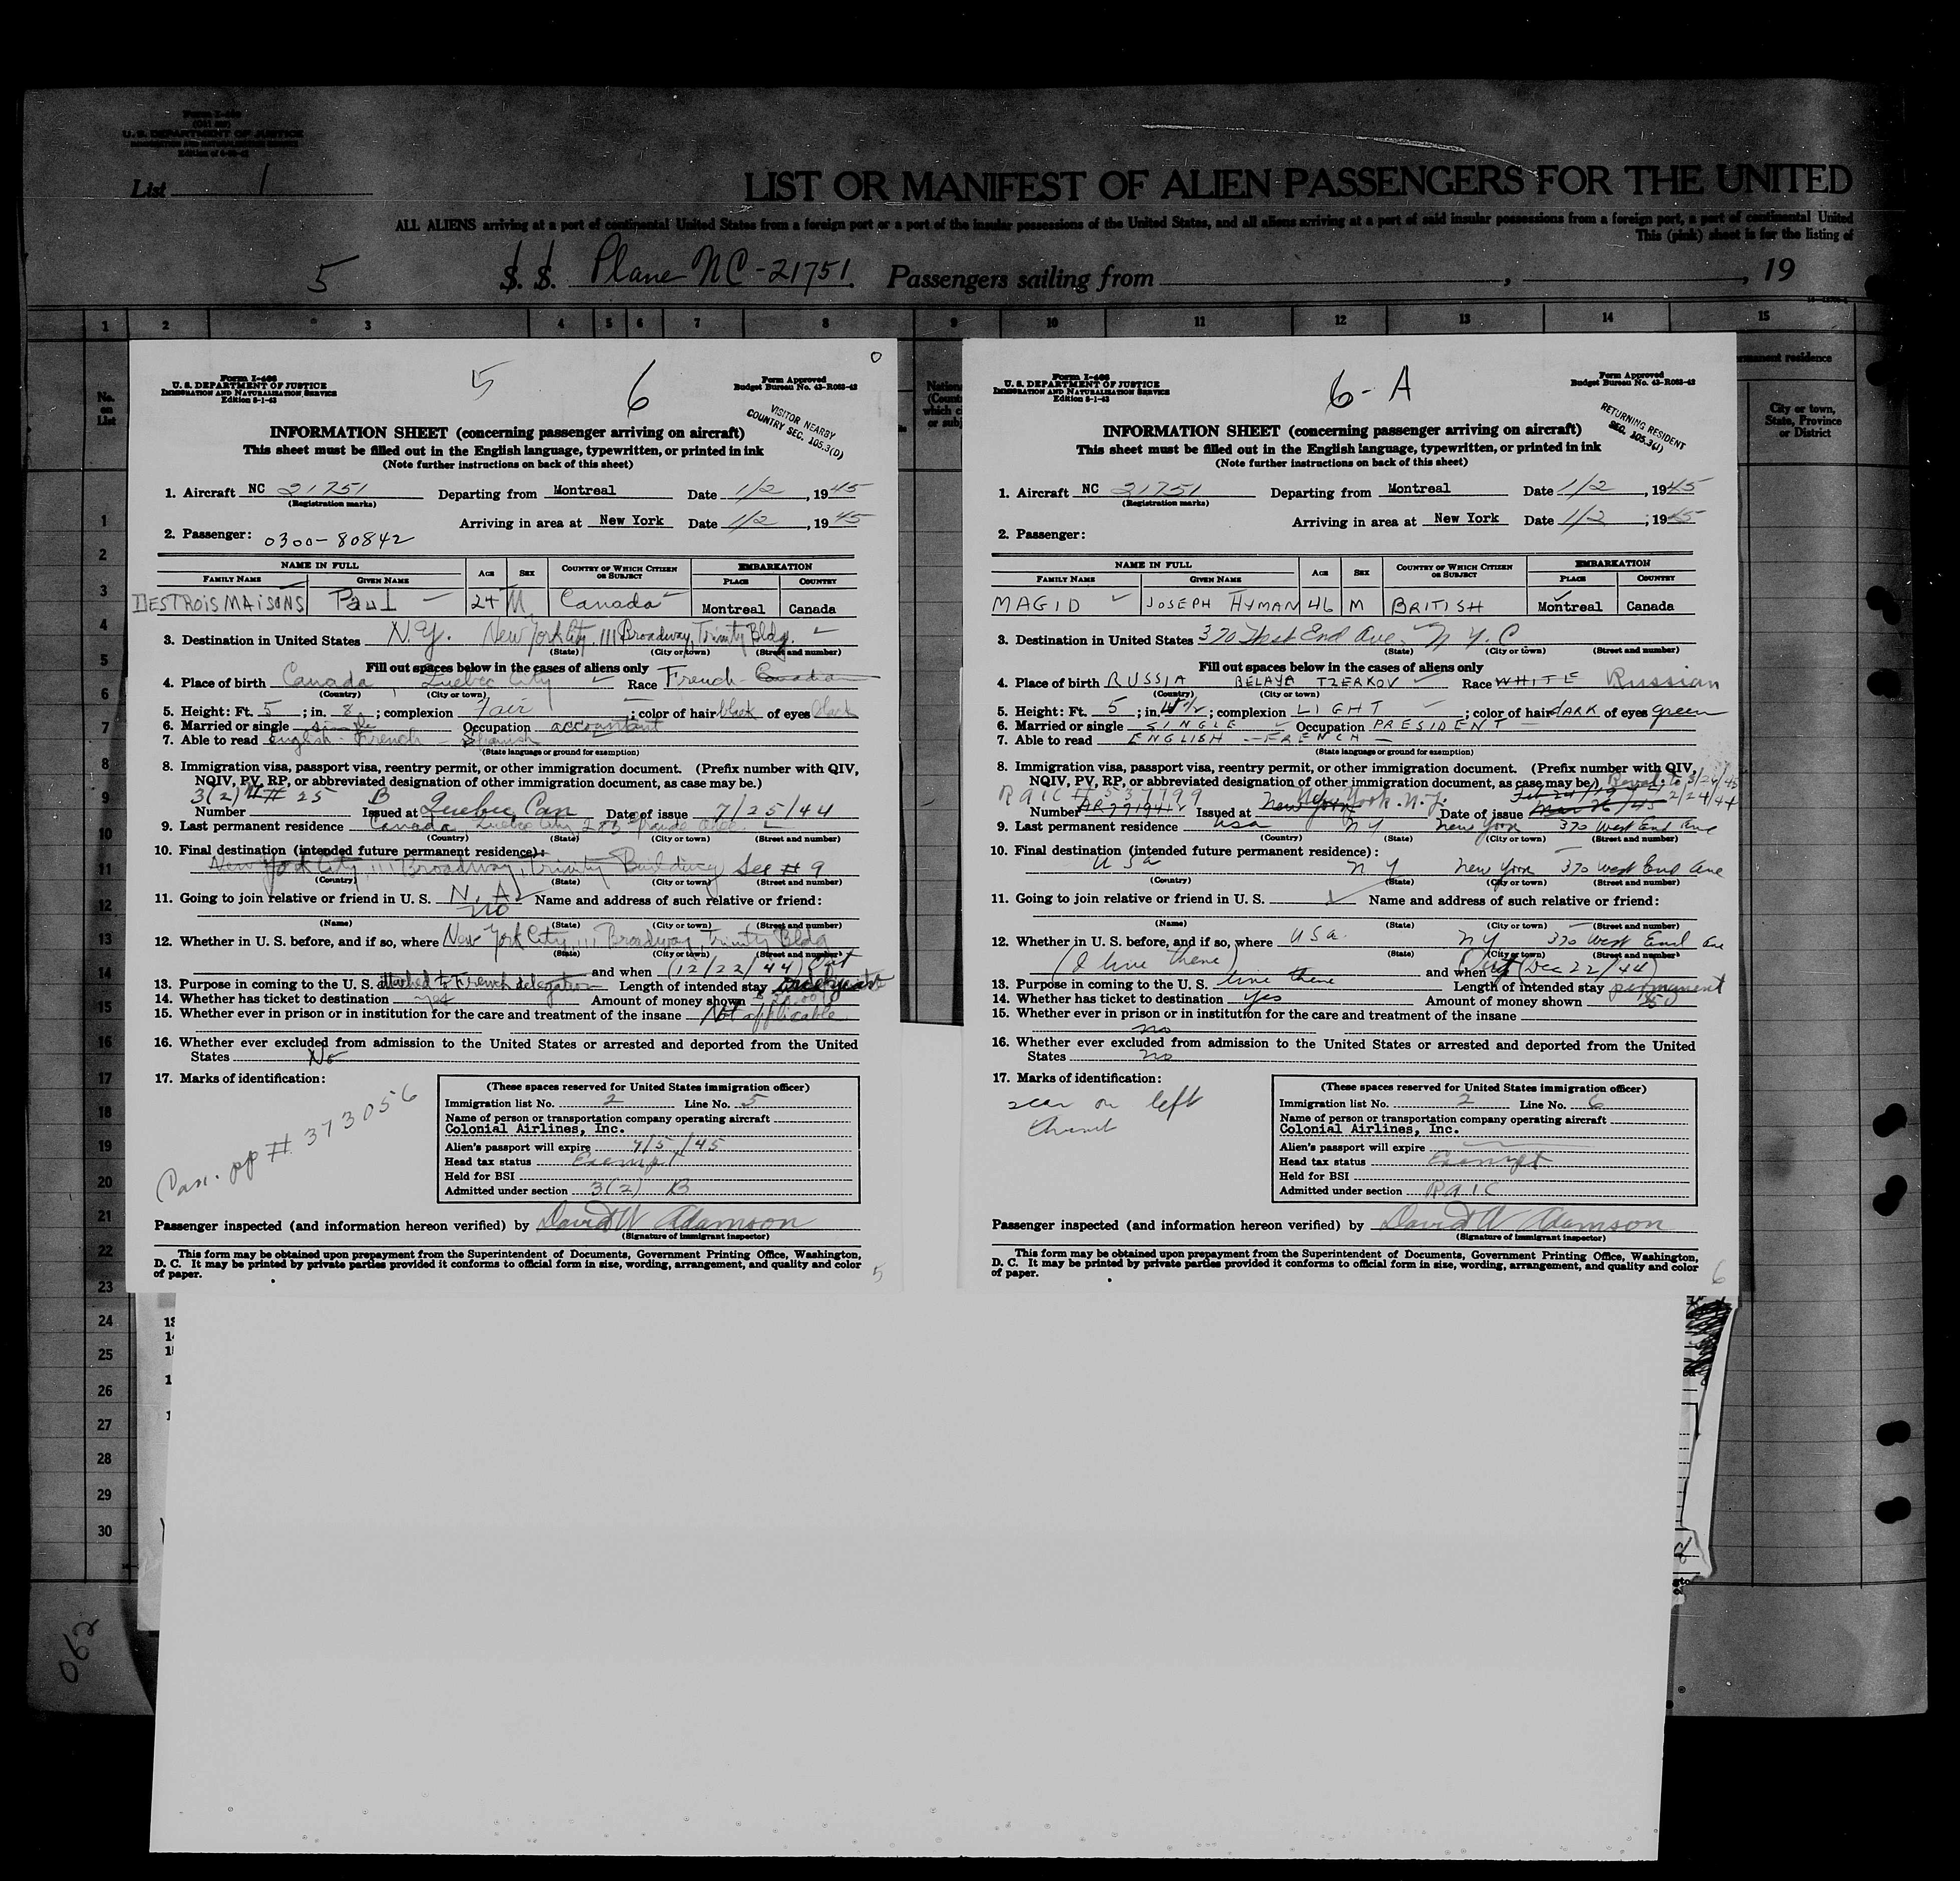 Form I-466
U. S. DEPARTMENT OF JUSTICE
List 1
LIST OR MANIFEST OF ALIEN PASSENGERS FOR THE UNITED
ALL ALIENS arriving at a port of continental United States from a foreign port or a port of the insular possessions of the United States, and all aliens arriving at a port of said insular possessions from a foreign port, a port of continental United
This (pink) sheet is for the listing of
5 S. S. Plane NC-21751 Passengers sailing from , , 19
1 2 3 4 5 6 7 8 9 10 11 12 13 14 15
No. on List
permanent residence
City or town, State, Province or District
5 6
Form I-466
U. S. DEPARTMENT OF JUSTICE
IMMIGRATION AND NATURALIZATION SERVICE
Edition 5-1-43
Form Approved
Budget Bureau No. 43-R083-42
VISITOR NEARBY
COUNTRY SEC. 105.3(D)
INFORMATION SHEET (concerning passenger arriving on aircraft)
This sheet must be filled out in the English language, typewritten, or printed in ink
(Note further instructions on back of this sheet)
1. Aircraft NC 21751 Departing from Montreal Date 1/2, 1945
(Registration marks)
Arriving in area at New York Date 1/2, 1945
2. Passenger: 0300-80842
NAME IN FULL AGE SEX COUNTRY OF WHICH CITIZEN OR SUBJECT EMBARKATION
FAMILY NAME GIVEN NAME PLACE COUNTRY
DESTROISMAISONS Paul 24 M Canada Montreal Canada
3. Destination in United States N.Y. New York City, 111 Broadway, Trinity Bldg.
(State) (City or town) (Street and number)
Fill out spaces below in the cases of aliens only
4. Place of birth Canada, Quebec City Race French-Canadian
(Country) (City or town)
5. Height: Ft. 5; in. 8; complexion Fair; color of hair black of eyes black
6. Married or single single Occupation accountant
7. Able to read English - French - Spanish
(State language or ground for exemption)
8. Immigration visa, passport visa, reentry permit, or other immigration document. (Prefix number with QIV,
NQIV, PV, RP, or abbreviated designation of other immigration document, as case may be.)
3(2) # 25 B
Number Issued at Quebec, Can Date of issue 7/25/44
9. Last permanent residence Canada Quebec City
(Country) (State) (City or town) (Street and number)
10. Final destination (intended future permanent residence):
New York City, 111 Broadway, Trinity Building See # 9
(Country) (State) (City or town) (Street and number)
11. Going to join relative or friend in U. S. N. A. Name and address of such relative or friend:
no
(Name) (State) (City or town) (Street and number)
12. Whether in U. S. before, and if so, where New York City, 111 Broadway, Trinity Bldg
(State) (City or town) (Street and number)
and when (12/22/44) Out
13. Purpose in coming to the U. S. attached to French delegation Length of intended stay
14. Whether has ticket to destination yes Amount of money shown
15. Whether ever in prison or in institution for the care and treatment of the insane Not applicable
16. Whether ever excluded from admission to the United States or arrested and deported from the United
States No
17. Marks of identification:
Can. pp # 373056
(These spaces reserved for United States immigration officer)
Immigration list No. 2 Line No. 5
Name of person or transportation company operating aircraft
Colonial Airlines, Inc.
Alien's passport will expire 7/5/45
Head tax status Exempt
Held for BSI
Admitted under section 3(2) B
Passenger inspected (and information hereon verified) by David W Adamson
(Signature of immigrant inspector)
This form may be obtained upon prepayment from the Superintendent of Documents, Government Printing Office, Washington,
D. C. It may be printed by private parties provided it conforms to official form in size, wording, arrangement, and quality and color
of paper.
5
6-A
Form I-466
U. S. DEPARTMENT OF JUSTICE
IMMIGRATION AND NATURALIZATION SERVICE
Edition 5-1-43
Form Approved
Budget Bureau No. 43-R083-42
RETURNING RESIDENT
SEC. 105.3(J)
INFORMATION SHEET (concerning passenger arriving on aircraft)
This sheet must be filled out in the English language, typewritten, or printed in ink
(Note further instructions on back of this sheet)
1. Aircraft NC 21751 Departing from Montreal Date 1/2, 1945
(Registration marks)
Arriving in area at New York Date 1/2, 1945
2. Passenger:
NAME IN FULL AGE SEX COUNTRY OF WHICH CITIZEN OR SUBJECT EMBARKATION
FAMILY NAME GIVEN NAME PLACE COUNTRY
MAGID JOSEPH HYMAN 46 M BRITISH Montreal Canada
3. Destination in United States 370 West End Ave. N.Y.C
(State) (City or town) (Street and number)
Fill out spaces below in the cases of aliens only
4. Place of birth RUSSIA BELAYA TZERKOV Race WHITE Russian
(Country) (City or town)
5. Height: Ft. 5; in. 4 1/2; complexion LIGHT; color of hair DARK of eyes green
6. Married or single SINGLE Occupation PRESIDENT
7. Able to read ENGLISH - FRENCH
(State language or ground for exemption)
8. Immigration visa, passport visa, reentry permit, or other immigration document. (Prefix number with QIV,
NQIV, PV, RP, or abbreviated designation of other immigration document, as case may be.)
RAIC #
Number Issued at New York. N.Y. Date of issue 2/24/44
9. Last permanent residence USA NY New York 370 West End Ave
(Country) (State) (City or town) (Street and number)
10. Final destination (intended future permanent residence):
USA NY New York 370 West End Ave
(Country) (State) (City or town) (Street and number)
11. Going to join relative or friend in U. S. Name and address of such relative or friend:
(Name) (State) (City or town) (Street and number)
12. Whether in U. S. before, and if so, where USA. NY 370 West End Ave
(State) (City or town) (Street and number)
(I live there) and when Out (Dec 22/44)
13. Purpose in coming to the U. S. live there Length of intended stay permanent
14. Whether has ticket to destination yes Amount of money shown 50
15. Whether ever in prison or in institution for the care and treatment of the insane
no
16. Whether ever excluded from admission to the United States or arrested and deported from the United
States no
17. Marks of identification:
scar on left
thumb
(These spaces reserved for United States immigration officer)
Immigration list No. 2 Line No. 6
Name of person or transportation company operating aircraft
Colonial Airlines, Inc.
Alien's passport will expire
Head tax status Exempt
Held for BSI
Admitted under section RAIC
Passenger inspected (and information hereon verified) by David W Adamson
(Signature of immigrant inspector)
This form may be obtained upon prepayment from the Superintendent of Documents, Government Printing Office, Washington,
D. C. It may be printed by private parties provided it conforms to official form in size, wording, arrangement, and quality and color
of paper.
6
1
2
3
4
5
6
7
8
9
10
11
12
13
14
15
16
17
18
19
20
21
22
23
24
25
26
27
28
29
30
062